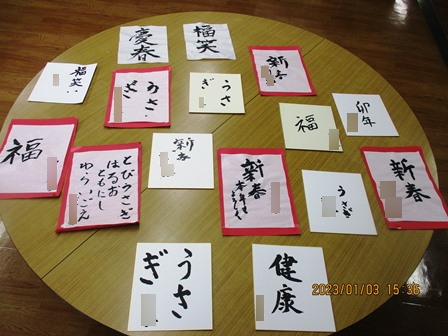 慶春
福笑
福笑
うさ
ぎ
うさ
ぎ
新春
卯年
福
福
とびうさぎ
はるお
ともにし
わらいごえ
新春
新春
うさぎ
新春
うさ
ぎ
健康
2023/01/03 15:36